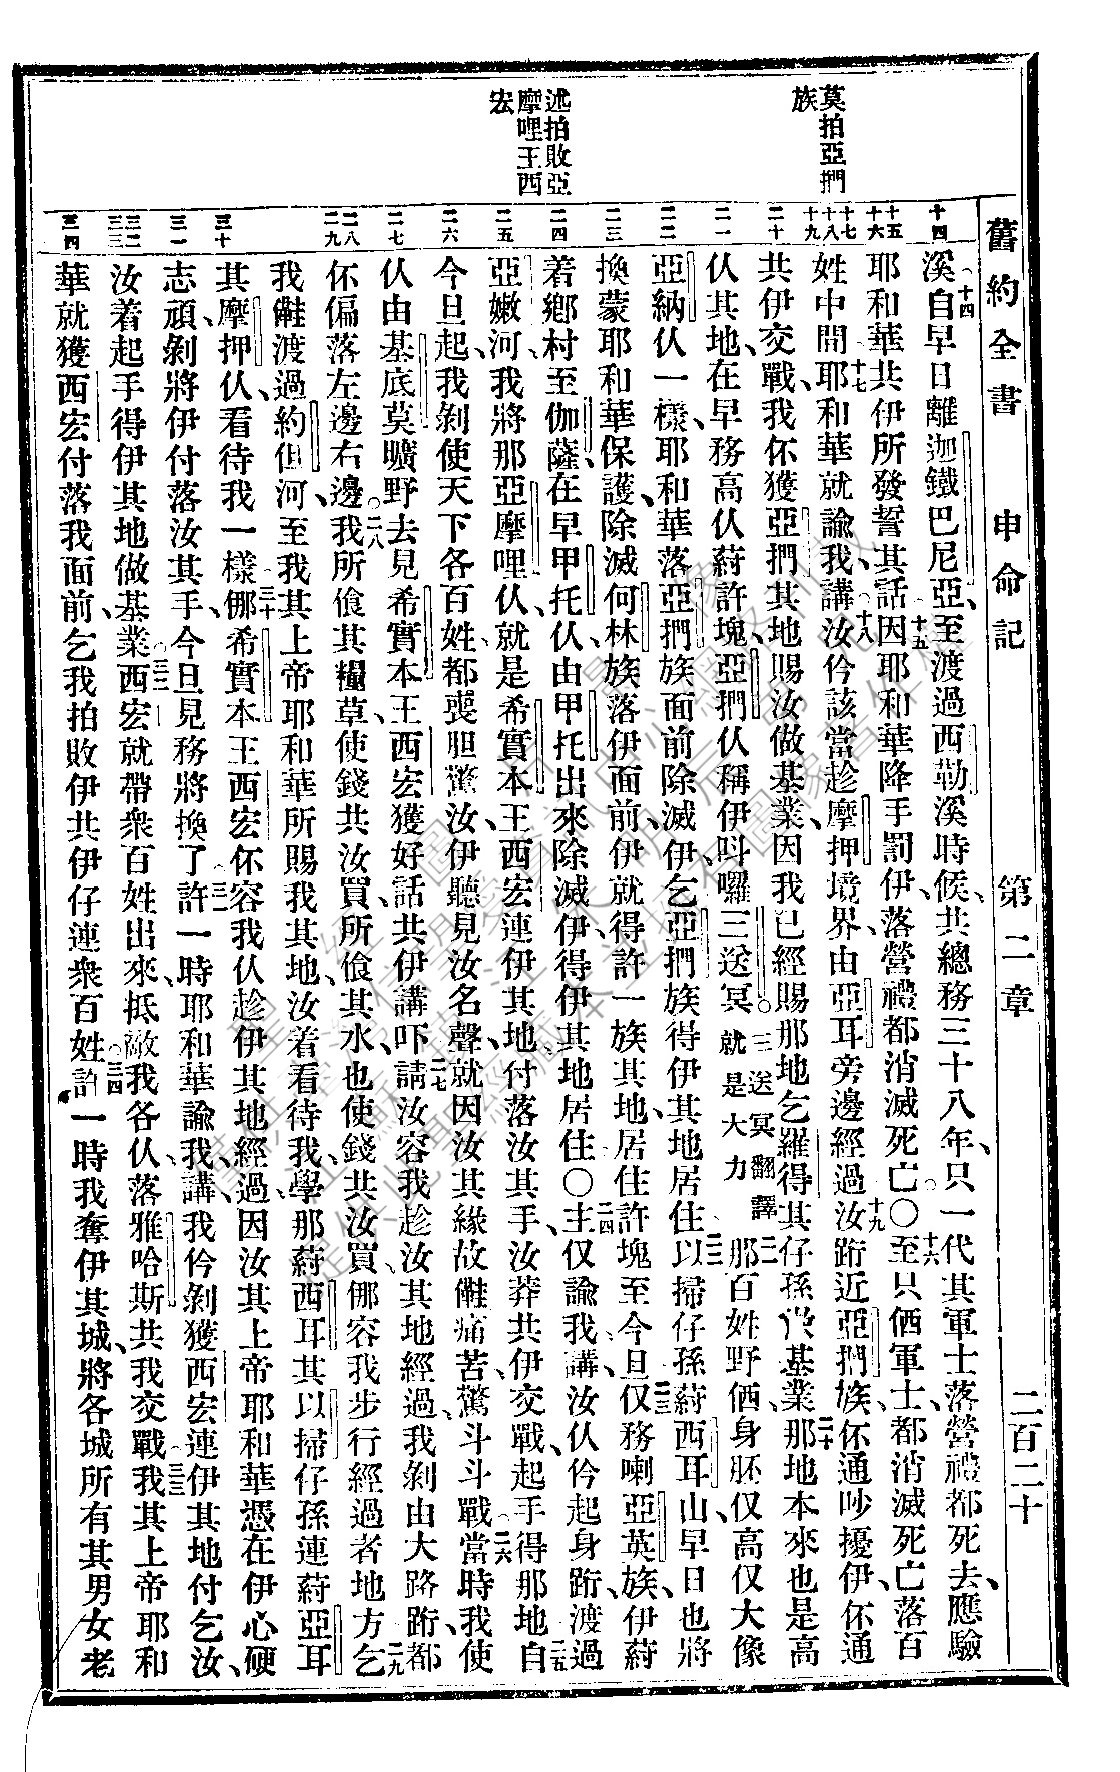 舊約全書　申命記　第二章　二百二十
莫拍亞捫族
述拍敗亞摩哩王西宏
十四
十五
十六
十七
十八
十九
二十
二一
二二
二三
二四
二五
二六
二七
二八
二九
三十
三一
三二
三三
三四
溪（十四）自早日離迦鐵巴尼亞、至渡過西勒溪時候、共總務三十八年、只一代其軍士落營禮都死去、應驗
耶和華共伊所發誓其話（十五）因耶和華降手罰伊、落營禮都消滅死亡○（十六）至只個軍士都消滅死亡落百
姓中間（十七）耶和華就諭我講（十八）汝仱該當趁摩押境界由亞耳旁邊經過（十九）汝跸近亞捫族、伓通吵擾伊、伓通
共伊交戰、我伓獲亞捫其地賜汝做基業、因我已經賜那地乞羅得其仔孫做基業（二十）那地本來也是高
仈其地、在早務高仈藭許塊、亞捫仈稱伊呌囉三送冥。三送冥翻譯就是大力（二一）那百姓野個身胚仅高仅大像
亞納仈一樣、耶和華落亞捫族面前除滅伊、乞亞捫族得伊其地居住（二二）以掃仔孫藭西耳山、早日也將
換蒙耶和華保護、除滅何林族落伊面前、伊就得許一族其地、居住許塊至今旦（二三）仅務喇亞英族、伊藭
着鄉村至伽薩、在早甲托仈由甲托出來除滅伊、得伊其地居住○（二四）主仅諭我講、汝仈仱起身跸、渡過
亞嫩河、我將那亞摩哩仈、就是希實本王西宏連伊其地、付落汝其手、汝莽共伊交戰、起手得那地（二五）自
今旦起、我剝使天下各百姓、都喪胆驚汝、伊聽見汝名聲、就因汝其緣故儺痛苦、驚斗斗戰（二六）當時我使
仈由基底莫曠野去見希實本王西宏獲好話共伊講吓（二七）請汝容我趁汝其地經過、我剝由大路跸、都
伓偏落左邊右邊。（二八）我所飡其糧草、使錢共汝買、所飡其水、也使錢共汝買、㑚容我步行經過（二九）者地方乞
我儺渡過約但河、至我其上帝耶和華所賜我其地、汝着看待我、學那藭西耳其以掃仔孫連藭亞耳
其摩押仈看待我一樣（三十）㑚希實本王西宏伓容我仈趁伊其地經過、因汝其上帝耶和華憑在伊心硬
志頑、剝將伊付落汝其手、今旦見務將換了（三一）許一時耶和華諭我講、我仱剝獲西宏連伊其地付乞汝、
汝着起手得伊其地做基業（三二）西宏就帶衆百姓出來、抵敵我各仈、落雅哈斯共我交戰（三三）我其上帝耶和
華就獲西宏付落我面前、乞我拍敗伊共伊仔連衆百姓。（三四）許一時我奪伊其城、將各城所有其男女老